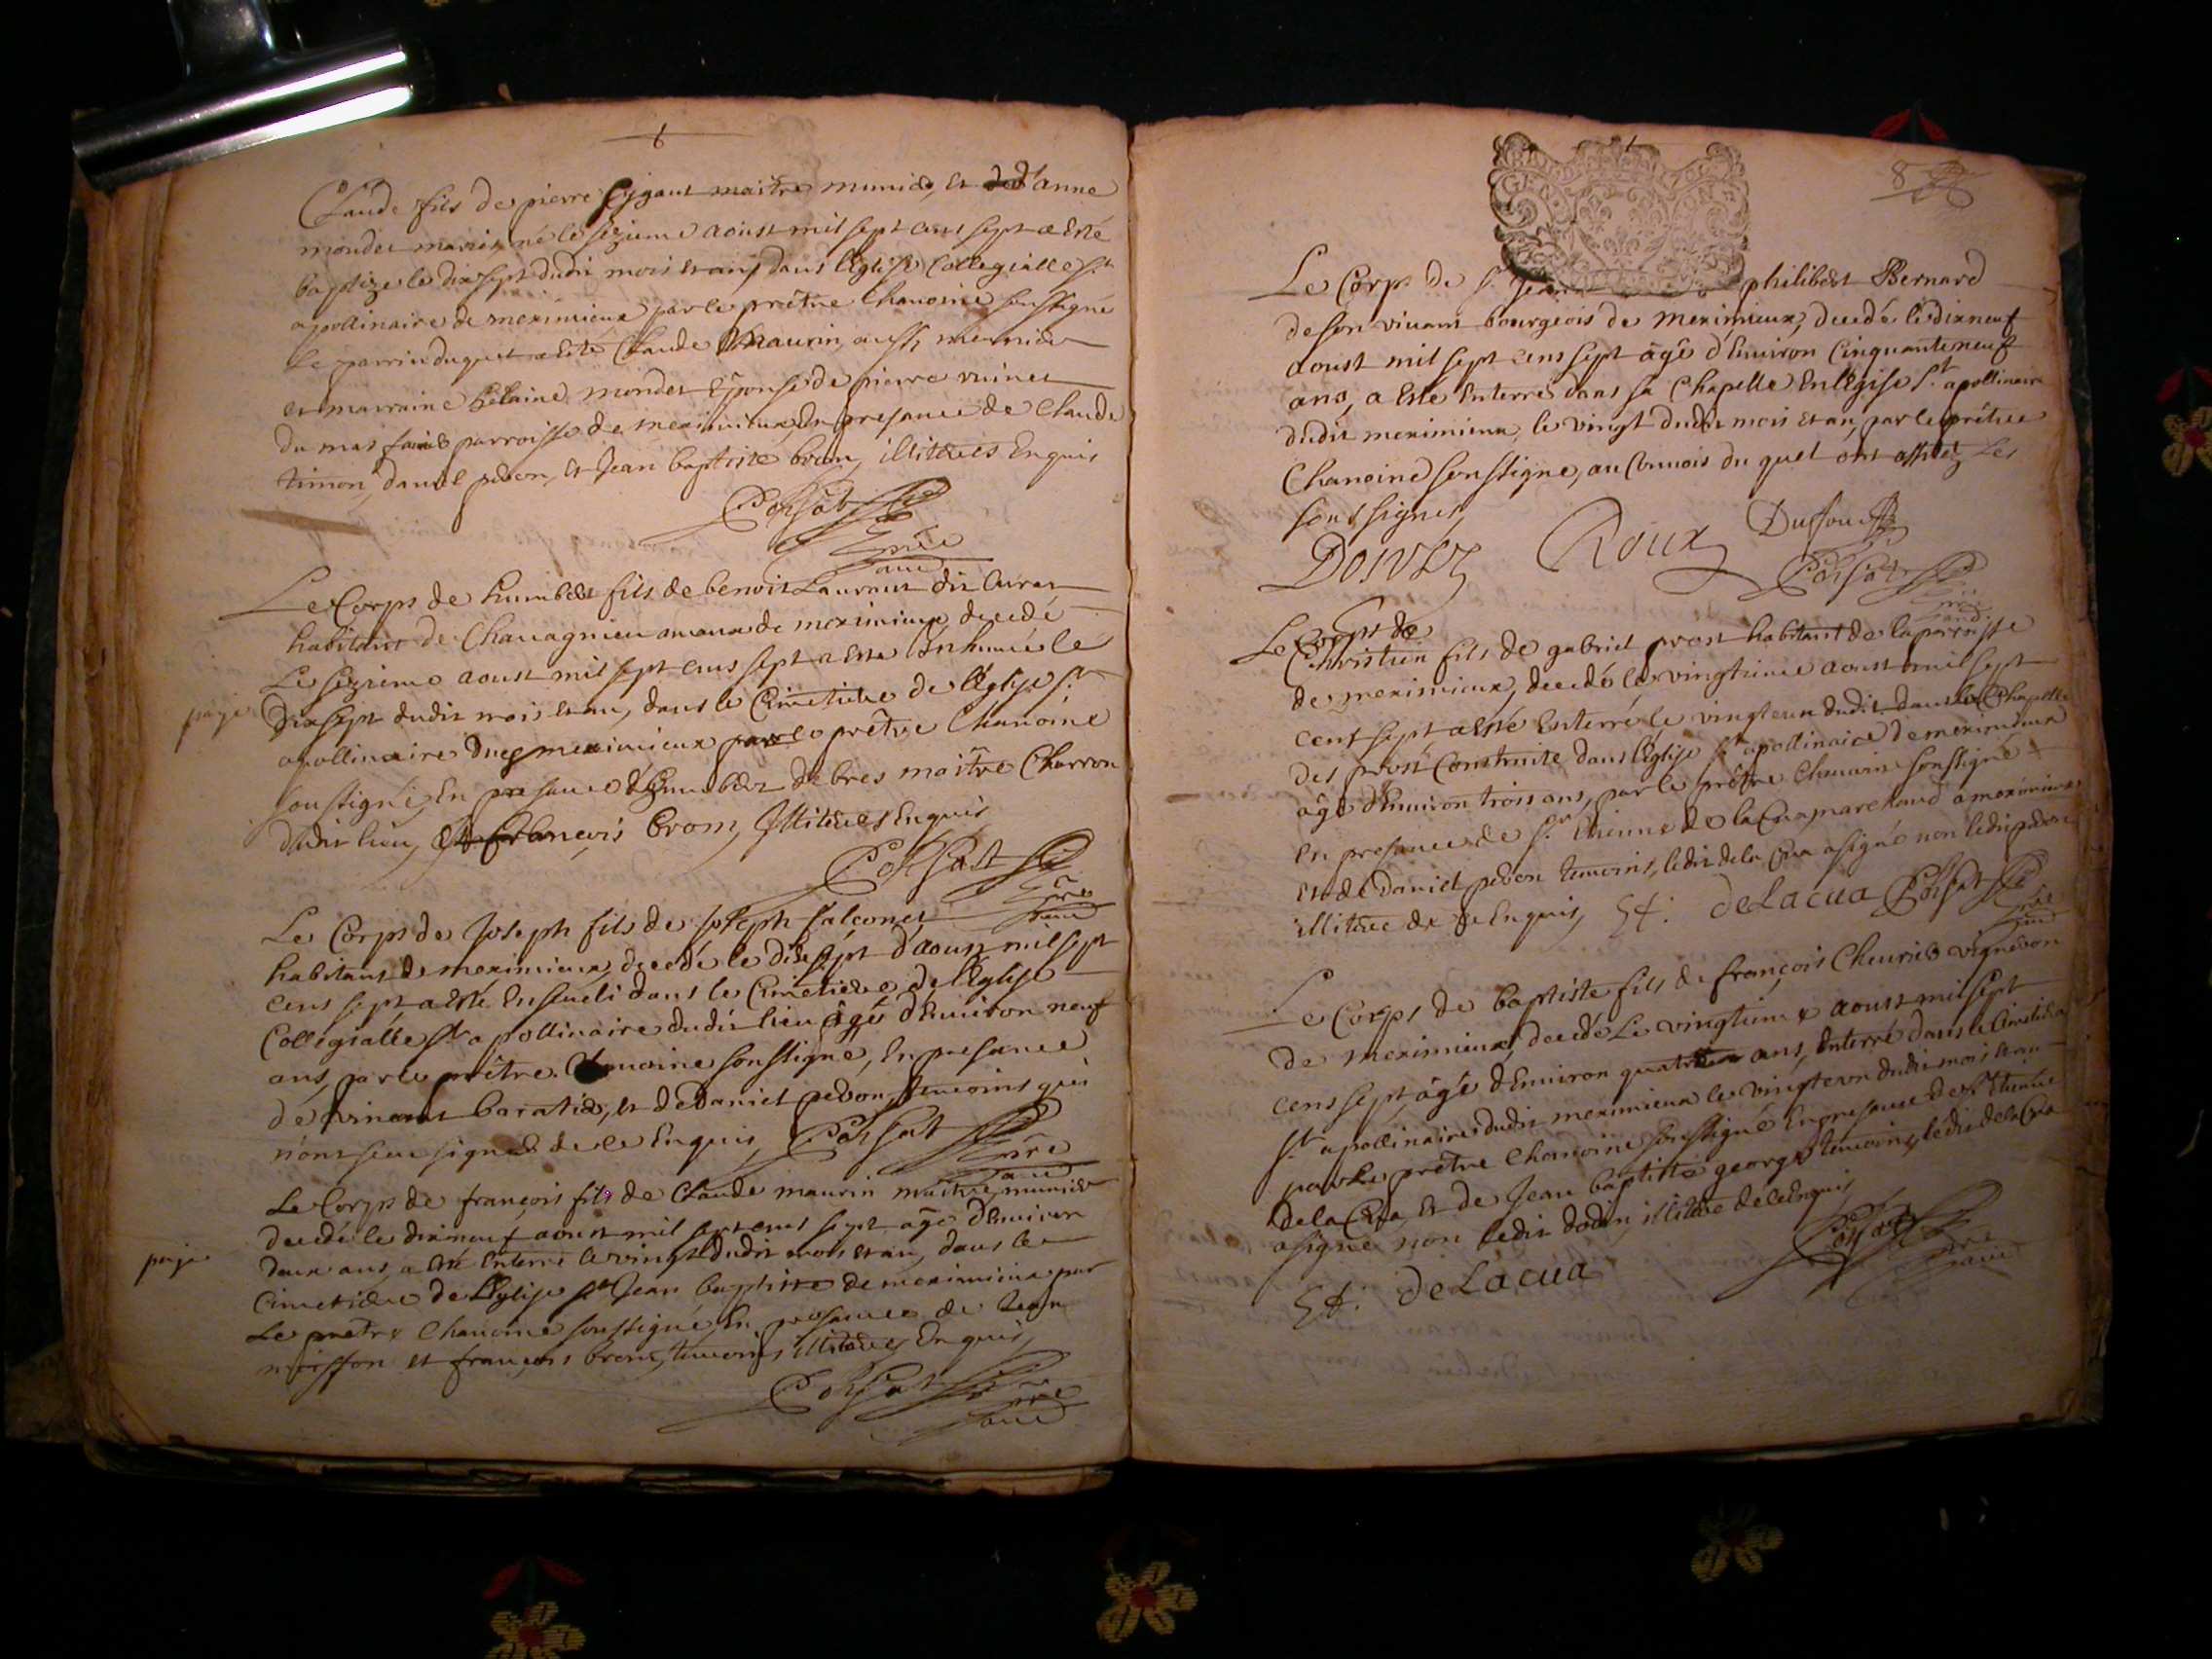 Claude fils de pierre maitre munier, et d'anne
mondet mariez, né le sezieme aoust mil sept cens sept a esté
baptize le dix sept dudit mois et an dans l'Eglise Collegialle St
apollinaire de meximieux par le prêtre Chanoine soussigné
le parrin duquel a esté Claude Maurin, aussy meunier
et marraine helaine mondet Epouse de pierre
du mas parroisse de meximieux, En presance de Claude
timon, daniel pedon, et Jean baptiste brom, illiterés Enquis
Corsat
prêtre
Le Corps de humbert fils de benoit Laurent dit
habitant de Chavagnieu de meximieux decedé
Le sezieme aoust mil sept cens sept a esté Inhumé le
page
Dix sept dudit mois et an, dans le Cimetiere de l'Eglise St
apollinaire meximieux par le prêtre Chanoine
soussigné, En presance d'humbert debres maître Charron
dudit lieu, et françois brom, Illiterés Enquis
Corsat
prêtre
Le Corps de Joseph fils de Joseph falconet
habitant de meximieux, decedé le dix sept d'aoust mil sept
cens sept a esté Enseveli dans le Cimetiere de l'Eglise
Collegialle St apollinaire dudit lieu âgé d'Environ neuf
ans, par le prêtre Chanoine soussigné, En presance
de vincent baratier, et de Daniel pedon, temoins qui
n'ont sceu signer de ce Enquis, Corsat
prêtre
Le Corps de françois fils de Claude maurin maitre munier
page
decedé le dixneuf aoust mil sept cens sept âgé d'Environ
deux ans, a esté Enterré le vingt dudit mois et an, dans le
Cimetiere de l'Eglise St Jean baptiste de meximieux par
Le prêtre Chanoine soussigné, En presance de Jean
moisson et françois brom, temoins illiterés Enquis,
Corsat
prêtre
GEN
8
Le Corps de Sr Jean philibert Bernard
de son vivant bourgeois de meximieux, decedé le dixneuf
aoust mil sept cens sept âgé d'Environ Cinquante neuf
ans, a esté Enterré dans sa Chapelle En l'Eglise St apollinaire
dudit meximieux, le vingt dudit mois et an, par le prêtre
Chanoine soussigné, au Convois du quel ont assisté Les
soussignes,
Roux
Dufour
Corsat
prêtre
Le Corps de
Christien fils de gabriel prost habitant de la parroisse
de meximieux, decedé le vingtieme aoust mil sept
cent sept a esté Enterré le vingt eun dudit dans la Chapelle
des prost Construite dans l'Eglise St apollinaire de meximieux
âgé d'Environ trois ans, par le prêtre Chanoine soussigné
En presance de Sr Etienne de la Cua marchand a meximieux
et de Daniel pedon temoins, ledit de la Cua a signé non ledit pedon
illiteré de ce Enquis, Et: deLacua Corsat
prêtre
Le Corps de baptiste fils de françois Cheurier vigneron
de meximieux, decedé Le vingtieme aoust mil sept
cens sept, âgé d'Environ quatre ans, Enterré dans le Cimetiere
St apollinaire dudit meximieux le vingt eun dudit mois et an
par Le prêtre Chanoine soussigné En presance de Sr Etienne
de la Cua, et de Jean baptiste george temoins, ledit de la Cua
a signé non ledit dodin, illiteré de ce Enquis
Corsat
prêtre
Et: deLacua